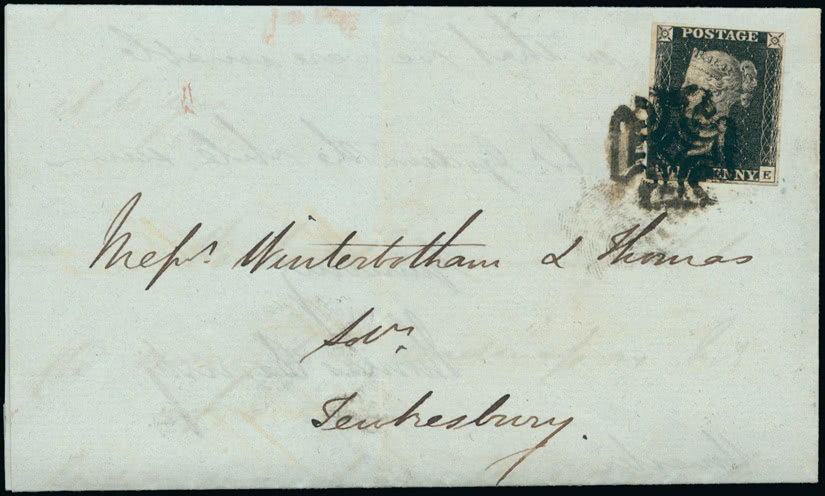 POSTAGE
PENNY. E
Messrs Winterbotham & Thomas
Solrs
Tewkesbury.